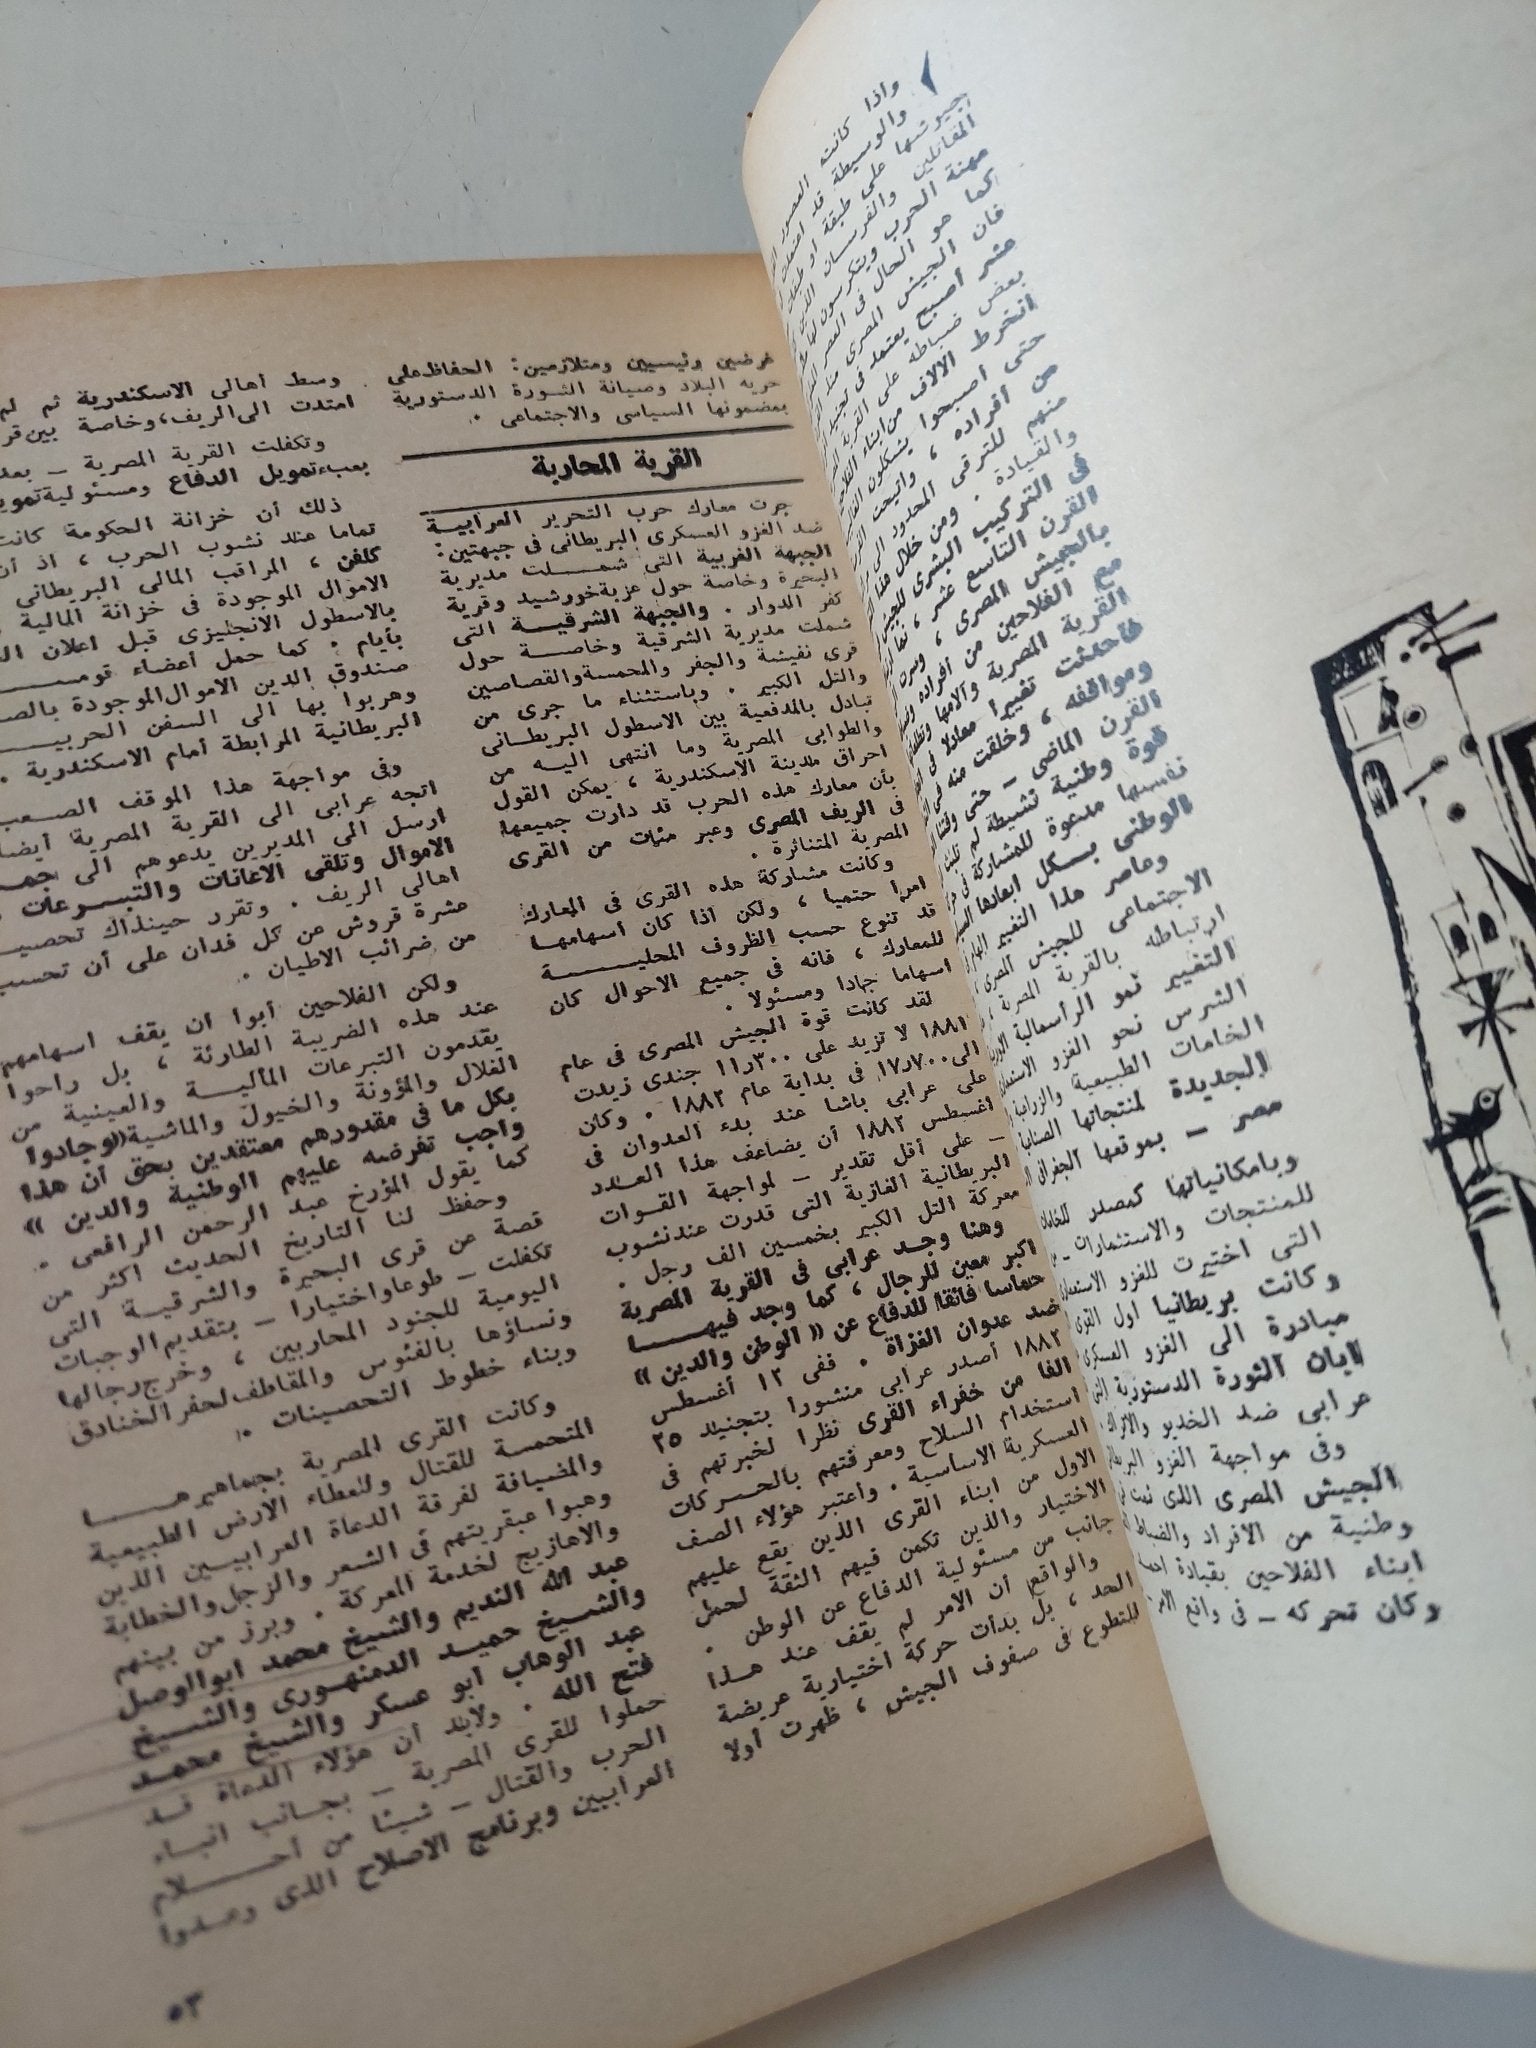 واذا كانت العصور
والوسيطة قد اعتمدت
جيوشها على طبقة او طبقات
المقاتلين والفرسان الذين
مهنة الحرب ويتكرسون لها
كما هو الحال فى العصر
فان الجيش المصرى منذ
عشر أصبح يعتمد فى تجنيد
بعض ضباطه على القرية
انخرط الآلاف من ابناء الفلاحين
حتى أصبحوا يشكلون
من أفراده ، واتيحت
منهم للترقى المحدود الى
والقيادة . ومن خلال هذا
فى التركيب البشرى للجيش
القرن التاسع عشر ،
بالجيش المصرى ، وسرت
مع الفلاحين من أفراده
القرية المصرية وآلامها
فأحدثت تغييرا معادلا فى
ومواقفه ، وخلقت منه فى
القرن الماضى – حتى
قوة وطنية نشيطة لم تلبث
نفسها مدعوة للمشاركة فى
الوطنى بسكل ابعادها
وعاصر هذا التغيير الهام
الاجتماعى للجيش المصرى
ارتباطه بالقرية المصرية
التغيير نمو الرأسمالية
الشرس نحو الغزو
الخامات الطبيعية والزراعية
الجديدة لمنتجاتها الصناعية
مصر – بموقعها الجغرافى
وبامكانياتها كمصدر للخامات
للمنتجات والاستثمارات –
التى اختيرت للغزو
وكانت بريطانيا اول القوى
مبادرة الى الغزو العسكرى
ابان الثورة الدستورية التى
عرابى ضد الخديو والاتراك
وفى مواجهة الغزو
الجيش المصرى الذى
وطنية من الافراد والضباط
ابناء الفلاحين بقيادة احمد
وكان تحركه – فى واقع الامر
غرضين رئيسيين ومتلازمين : الحفاظ على
حرية البلاد وصيانة الثورة الدستورية
بمضمونها السياسى والاجتماعى .
القرية المحاربة
جرت معارك حرب التحرير العرابية
ضد الغزو العسكرى البريطانى فى جبهتين:
الجبهة الغربية التى شملت مديرية
البحيرة وخاصة حول عزبة خورشيد وقرية
كفر الدوار . والجبهة الشرقية التى
شملت مديرية الشرقية وخاصة حول
قرى نفيشة والجفر والمحسمة والقصاصين
والتل الكبير . وباستثناء ما جرى من
تبادل بالمدفعية بين الاسطول البريطانى
والطوابى المصرية وما انتهى اليه من
احراق مدينة الاسكندرية ، يمكن القول
بأن معارك هذه الحرب قد دارت جميعها
فى الريف المصرى وعبر مئات من القرى
المصرية المتناثرة .
وكانت مشاركة هذه القرى فى المعارك
امرا حتميا ، ولكن اذا كان اسهامها
قد تنوع حسب الظروف المحلية
للمعارك ، فانه فى جميع الاحوال كان
اسهاما جادا ومسئولا .
لقد كانت قوة الجيش المصرى فى عام
١٨٨١ لا تزيد على ١١٫٣٠٠ جندى زيدت
الى ١٧٫٧٠٠ فى بداية عام ١٨٨٢ . وكان
على عرابى باشا عند بدء العدوان فى
اغسطس ١٨٨٢ أن يضاعف هذا العدد
– على أقل تقدير – لمواجهة القوات
البريطانية الغازية التى قدرت عند نشوب
معركة التل الكبير بخمسين الف رجل .
وهنا وجد عرابى فى القرية المصرية
اكبر معين للرجال ، كما وجد فيها
حماسا فائقا للدفاع عن « الوطن والدين »
ضد عدوان الغزاة . ففى ١٢ أغسطس
١٨٨٢ أصدر عرابى منشورا بتجنيد ٢٥
الفا من خفراء القرى نظرا لخبرتهم فى
استخدام السلاح ومعرفتهم بالحركات
العسكرية الاساسية . واعتبر هؤلاء الصف
الاول من ابناء القرى الذين يقع عليهم
الاختيار والذين تكمن فيهم الثقة لحمل
جانب من مسئولية الدفاع عن الوطن .
والواقع أن الأمر لم يقف عند هذا
الحد ، بل بدأت حركة اختيارية عريضة
للتطوع فى صفوف الجيش ، ظهرت أولا
وسط أهالى الاسكندرية ثم لم
امتدت الى الريف، وخاصة بين
وتكفلت القرية المصرية –
بعبء تمويل الدفاع ومسئولية
ذلك أن خزانة الحكومة كانت
تماما عند نشوب الحرب ، اذ أن
كلفن ، المراقب المالى البريطانى
الاموال الموجودة فى خزانة المالية
بالاسطول الانجليزى قبل اعلان
بأيام . كما حمل أعضاء
صندوق الدين الاموال الموجودة
وهربوا بها الى السفن الحربية
البريطانية المرابطة أمام الاسكندرية .
وفى مواجهة هذا الموقف الصعب
اتجه عرابى الى القرية المصرية أيضا
ارسل الى المديرين يدعوهم الى جمع
الاموال وتلقى الاعانات والتبرعات
اهالى الريف . وتقرر حينذاك
عشرة قروش عن كل فدان على أن
من ضرائب الاطيان .
ولكن الفلاحين أبوا ان يقف اسهامهم
عند هذه الضريبة الطارئة ، بل راحوا
يقدمون التبرعات المالية والعينية من
الغلال والمؤونة والخيول والماشية «وجادوا
بكل ما فى مقدورهم معتقدين بحق أن هذا
واجب تفرضه عليهم الوطنية والدين »
كما يقول المؤرخ عبد الرحمن الرافعى .
وحفظ لنا التاريخ الحديث اكثر من
قصة عن قرى البحيرة والشرقية التى
تكفلت – طوعا واختيارا – بتقديم الوجبات
اليومية للجنود المحاربين ، وخرج رجالها
ونساؤها بالفئوس والمقاطف لحفر الخنادق
وبناء خطوط التحصينات .
وكانت القرى المصرية بجماهيرها
المتحمسة للقتال وللعطاء الارض الطبيعية
والمضيافة لفرقة الدعاة العرابيين الذين
وهبوا عبقريتهم فى الشعر والزجل والخطابة
والاهازيج لخدمة المعركة . وبرز من بينهم
عبد الله النديم والشيخ محمد ابو الوصل
والشيخ حميد الدمنهورى والشيخ
عبد الوهاب ابو عسكر والشيخ محمد
فتح الله . ولابد أن هؤلاء الدعاة قد
حملوا للقرى المصرية – بجانب انباء
الحرب والقتال – شيئا من أحلام
العرابيين وبرنامج الاصلاح الذى وعدوا
٥٣